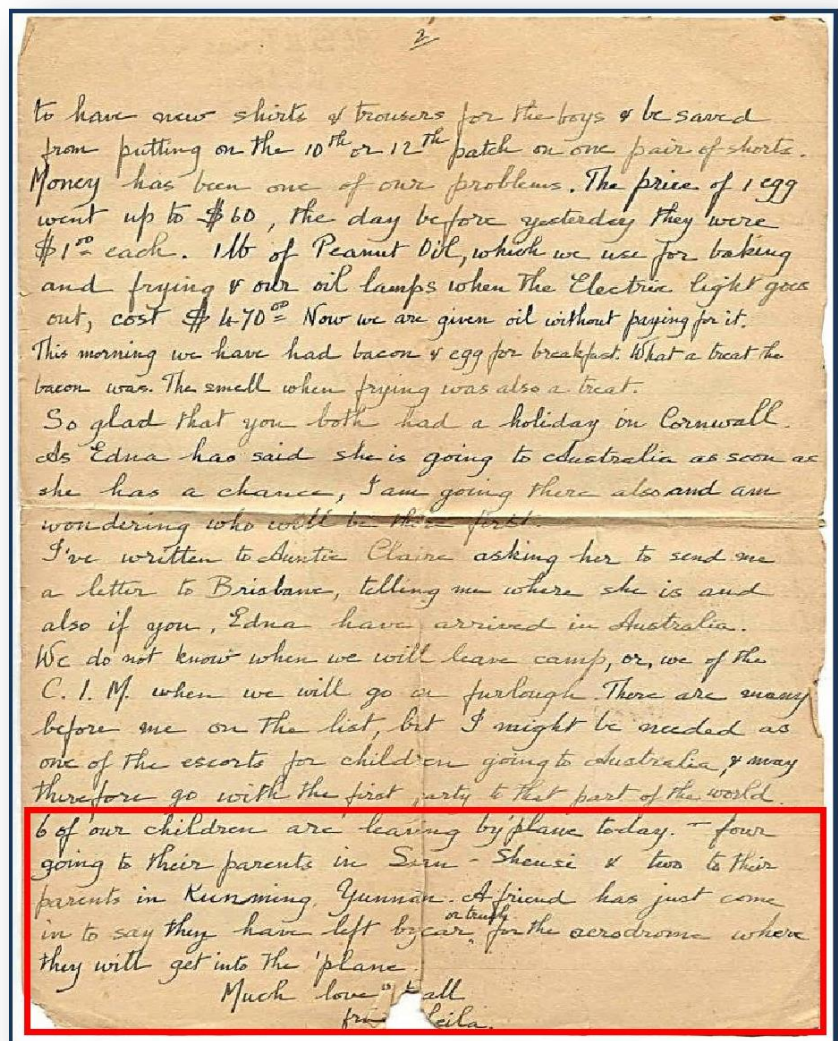 2
to have new shirts & trousers for the boys & be saved
from putting on the 10th or 12th patch on one pair of shorts.
Money has been one of our problems. The price of 1 egg
went up to $60, the day before yesterday they were
$1 00 each. 1lb of Peanut Oil, which we use for baking
and frying & our oil lamps when the Electric light goes
out, cost $470 00 Now we are given oil without paying for it.
This morning we have had bacon & egg for breakfast. What a treat the
bacon was. The smell when frying was also a treat.
So glad that you both had a holiday in Cornwall.
As Edna has said she is going to Australia as soon as
she has a chance, I am going there also and am
wondering who will be there first.
I've written to Auntie Claire asking her to send me
a letter to Brisbane, telling me where she is and
also if you, Edna have arrived in Australia.
We do not know when we will leave camp, or, we of the
C. I. M. when we will go on furlough. There are many
before me on the list, but I might be needed as
one of the escorts for children going to Australia, & may
therefore go with the first party to that part of the world.
6 of our children are leaving by 'plane today. - four
going to their parents in - Shensi & two to their
parents in Kunming, Yunnan. A friend has just come
in to say they have left by car or truck for the aerodrome where
they will get into the 'plane.
Much love to all
eila.